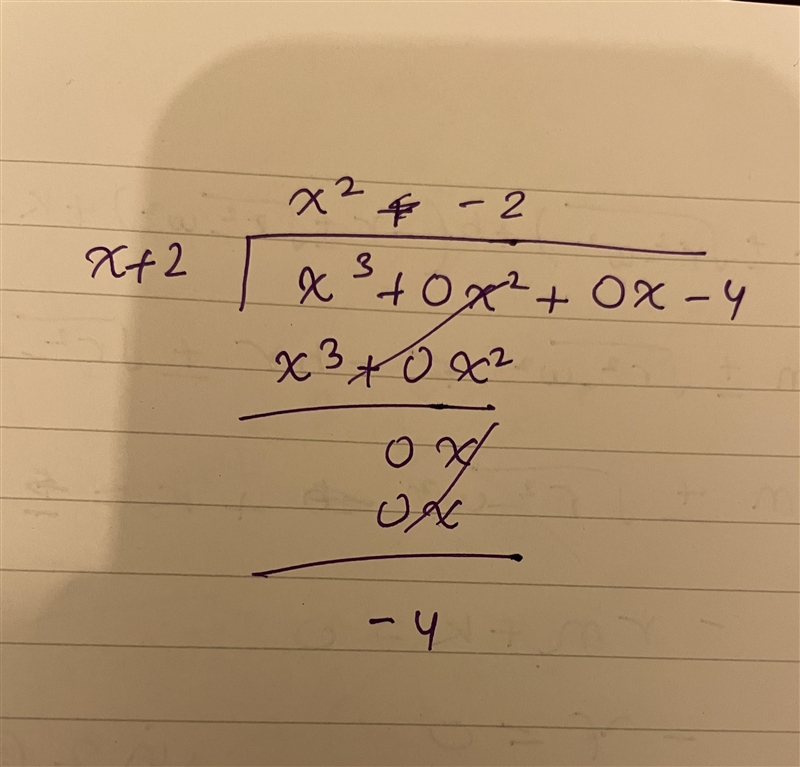 x² + - 2
x+2
x³ + 0x² + 0x - 4
x³ + 0x²
0x
0x
-4